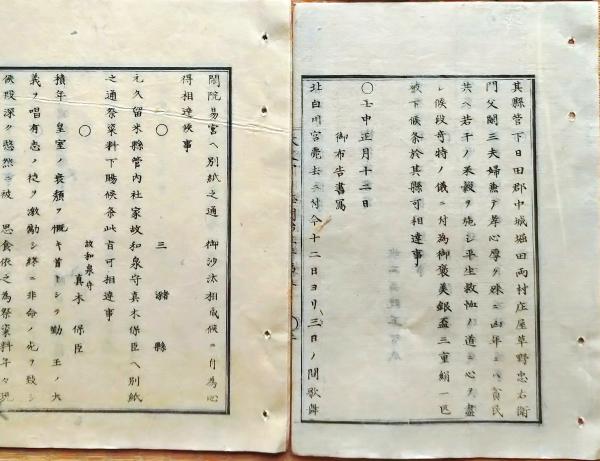 其縣管下日田郡中城堀田両村庄屋草野忠右衛
門父闇三夫婦兼テ孝心厚ク殊ニ凶年ニハ貧民
共ヘ若干ノ米穀ヲ施シ平生救恤ノ道ニ心ヲ盡
シ候段奇特ノ儀ニ付為御褒美銀盃三重絹一匹
被下候条於其縣可相達事
〇壬申正月十三日
御布告書寫
北白川宮薨去ニ付今十二日ヨリ三日ノ間歌舞
閑院易宮ヘ別紙之通 御沙汰相成候ニ付為心
得相達候事
〇 三潴縣
元久留米縣管内社家故和泉守真木保臣ヘ別紙
之通祭粢料下賜候条此旨可相達事
〇 故和泉守 真木保臣
積年 皇室ノ衰頽ヲ慨キ首トシテ勤 王ノ大
義ヲ唱有志ノ徒ヲ激勵シ終ニ非命ノ死ヲ致シ
候段深ク愍然ニ被 思食依之為祭粢料年々